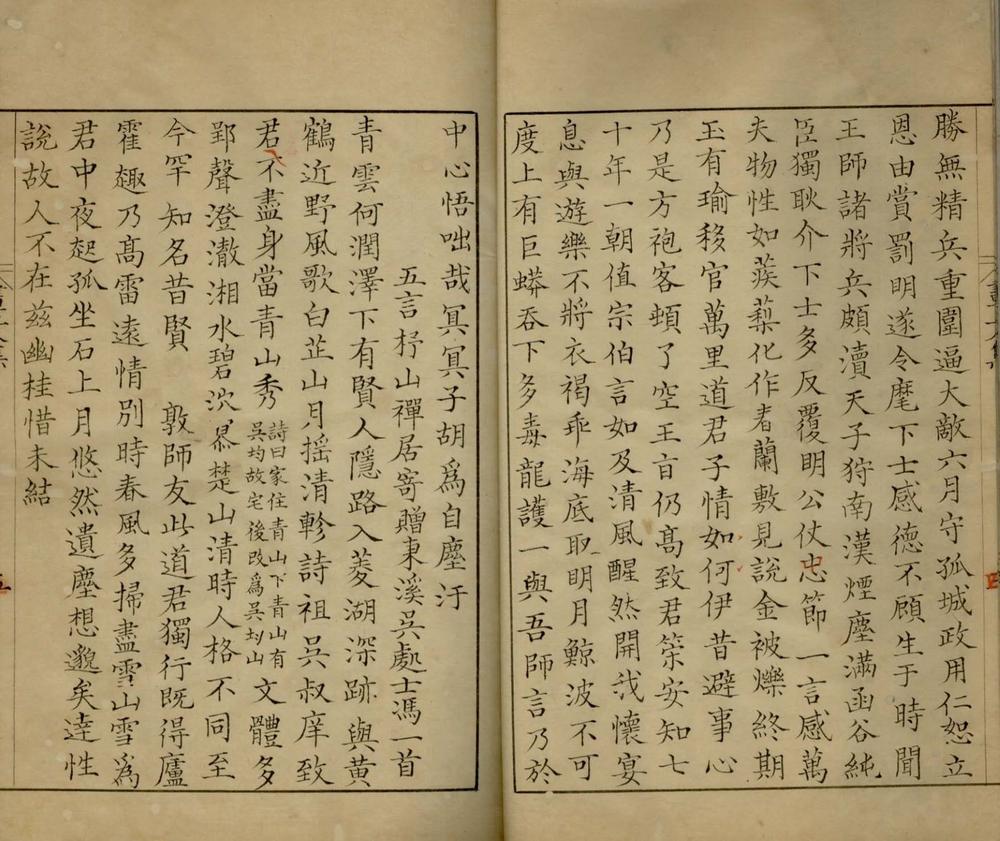 勝無精兵重圍逼大敵六月守孤城政用仁恕立
恩由賞罰明遂令麾下士感德不顧生于時聞
王師諸將兵頗瀆天子狩南漢煙塵滿函谷純
臣獨耿介下士多反覆明公仗忠節一言感萬
夫物性如蒺藜化作春蘭敷見說金被爍終期
玉有瑜移官萬里道君子情如何伊昔避事心
乃是方袍客頓了空王旨仍髙致君策安知七
十年一朝值宗伯言如及清風醒然開我懷宴
息與遊樂不將衣褐乖海底取明月鯨波不可
度上有巨蟒吞下多毒龍護一與吾師言乃於
中心悟咄哉冥冥子胡為自塵汙
五言杼山禪居寄贈東溪吳處士馮一首
青雲何潤澤下有賢人隱路入菱湖深跡與黃
鶴近野風歌白芷山月摇清軫詩祖吳叔庠致
君不盡身當青山秀詩曰家住青山下青山有吳均故宅後改為吳均山文體多
郢聲澄澈湘水碧泬㶒楚山清時人格不同至
今罕知名昔賢敦師友此道君獨行既得廬
霍趣乃髙雷遠情別時春風多掃盡雪山雪為
君中夜起孤坐石上月悠然遺塵想邈矣達性
說故人不在兹幽桂惜未結
五
四